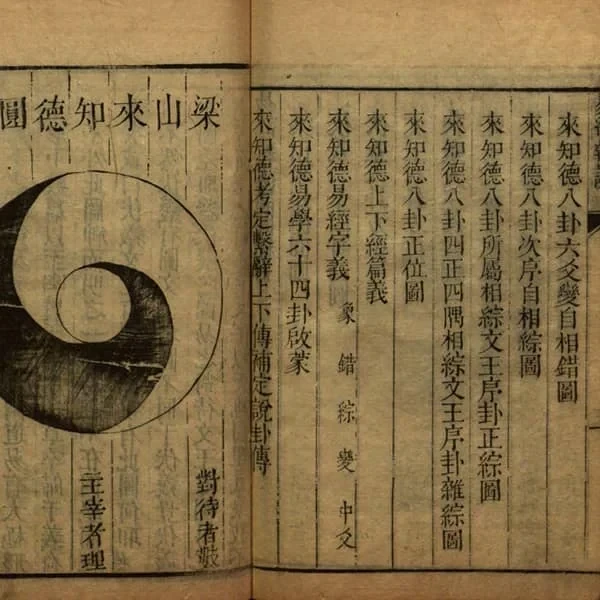 來知德八卦六爻變自相錯圖
來知德八卦次序自相綜圖
來知德八卦所屬相綜文王序卦正綜圖
來知德八卦四正四隅相綜文王序卦雜綜圖
來知德八卦正位圖
來知德上下經篇義
來知德易經字義 象 錯 綜 變 中爻
來知德易學六十四卦啟蒙
來知德考定繫辭上下傳補定說卦傳
梁山來知德圓
對待者數
主宰者理